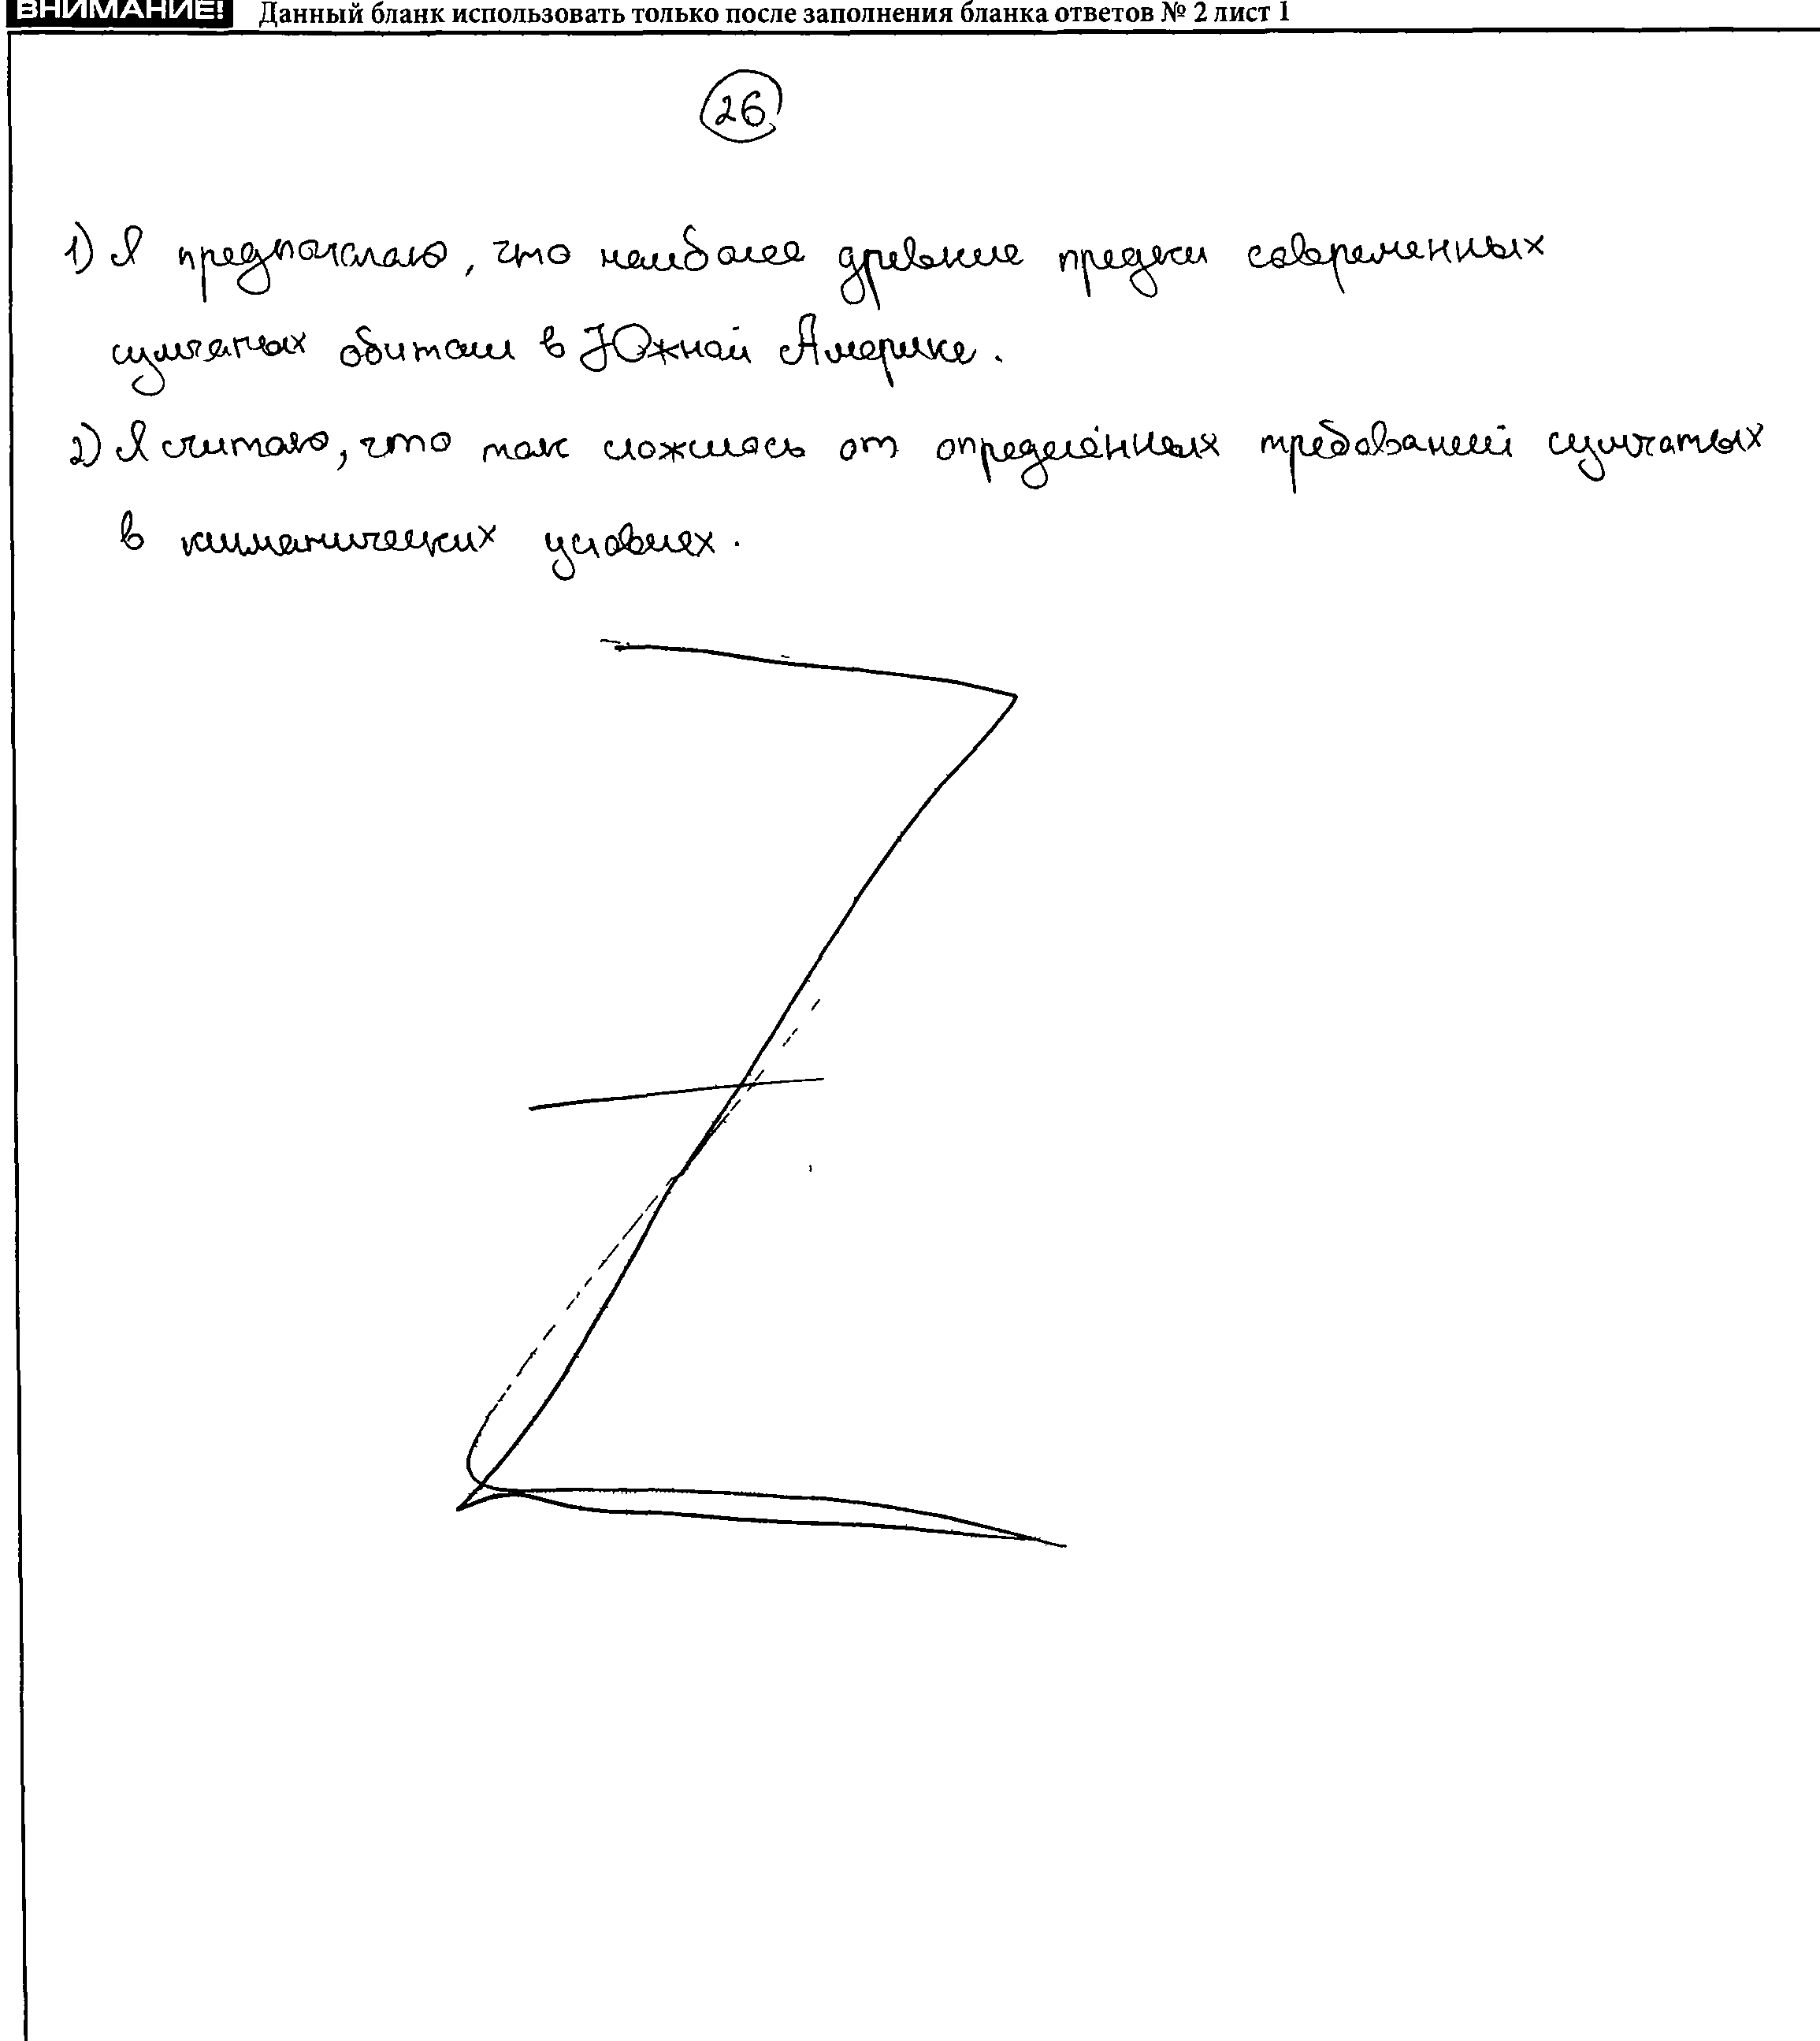 ВНИМАНИЕ! Данный бланк использовать только после заполнения бланка ответов № 2 лист 1
26
1) Я предполагаю, что наиболее древние предки современных
сумчатых обитали в Южной Америке.
2) Я считаю, что так сложилось от определённых требований сумчатых
в климатических условиях.